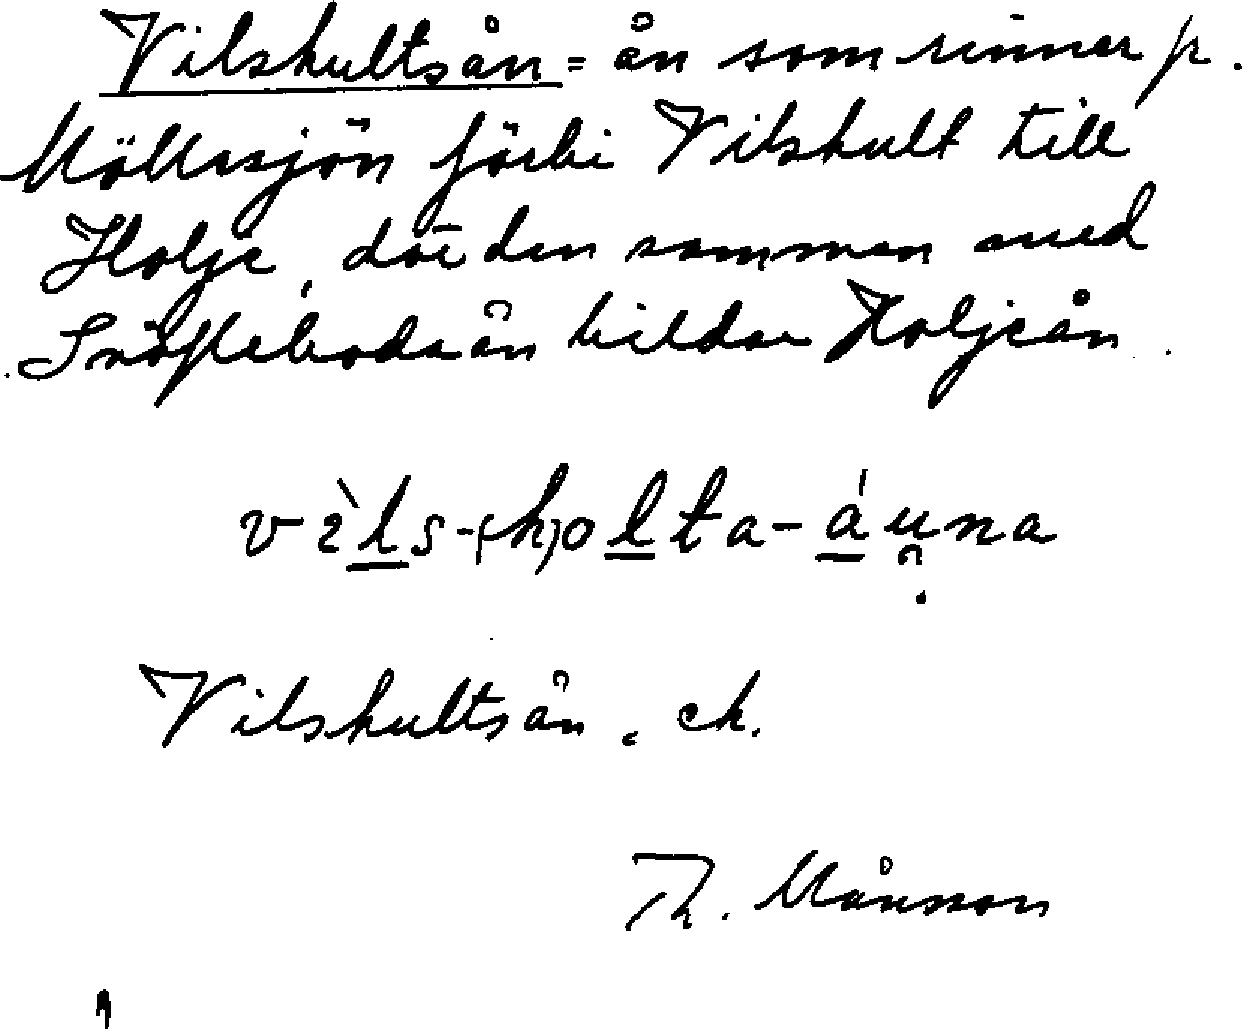 Vilshultsån = ån som rinner fr.
Möllesjön förbi Vilshult till
Holje, där den samman med
Snöflebodaån bildar Holjeån.
vìls-(h)olta-áuna
Vilshultsån. ck.
Th. Månsson